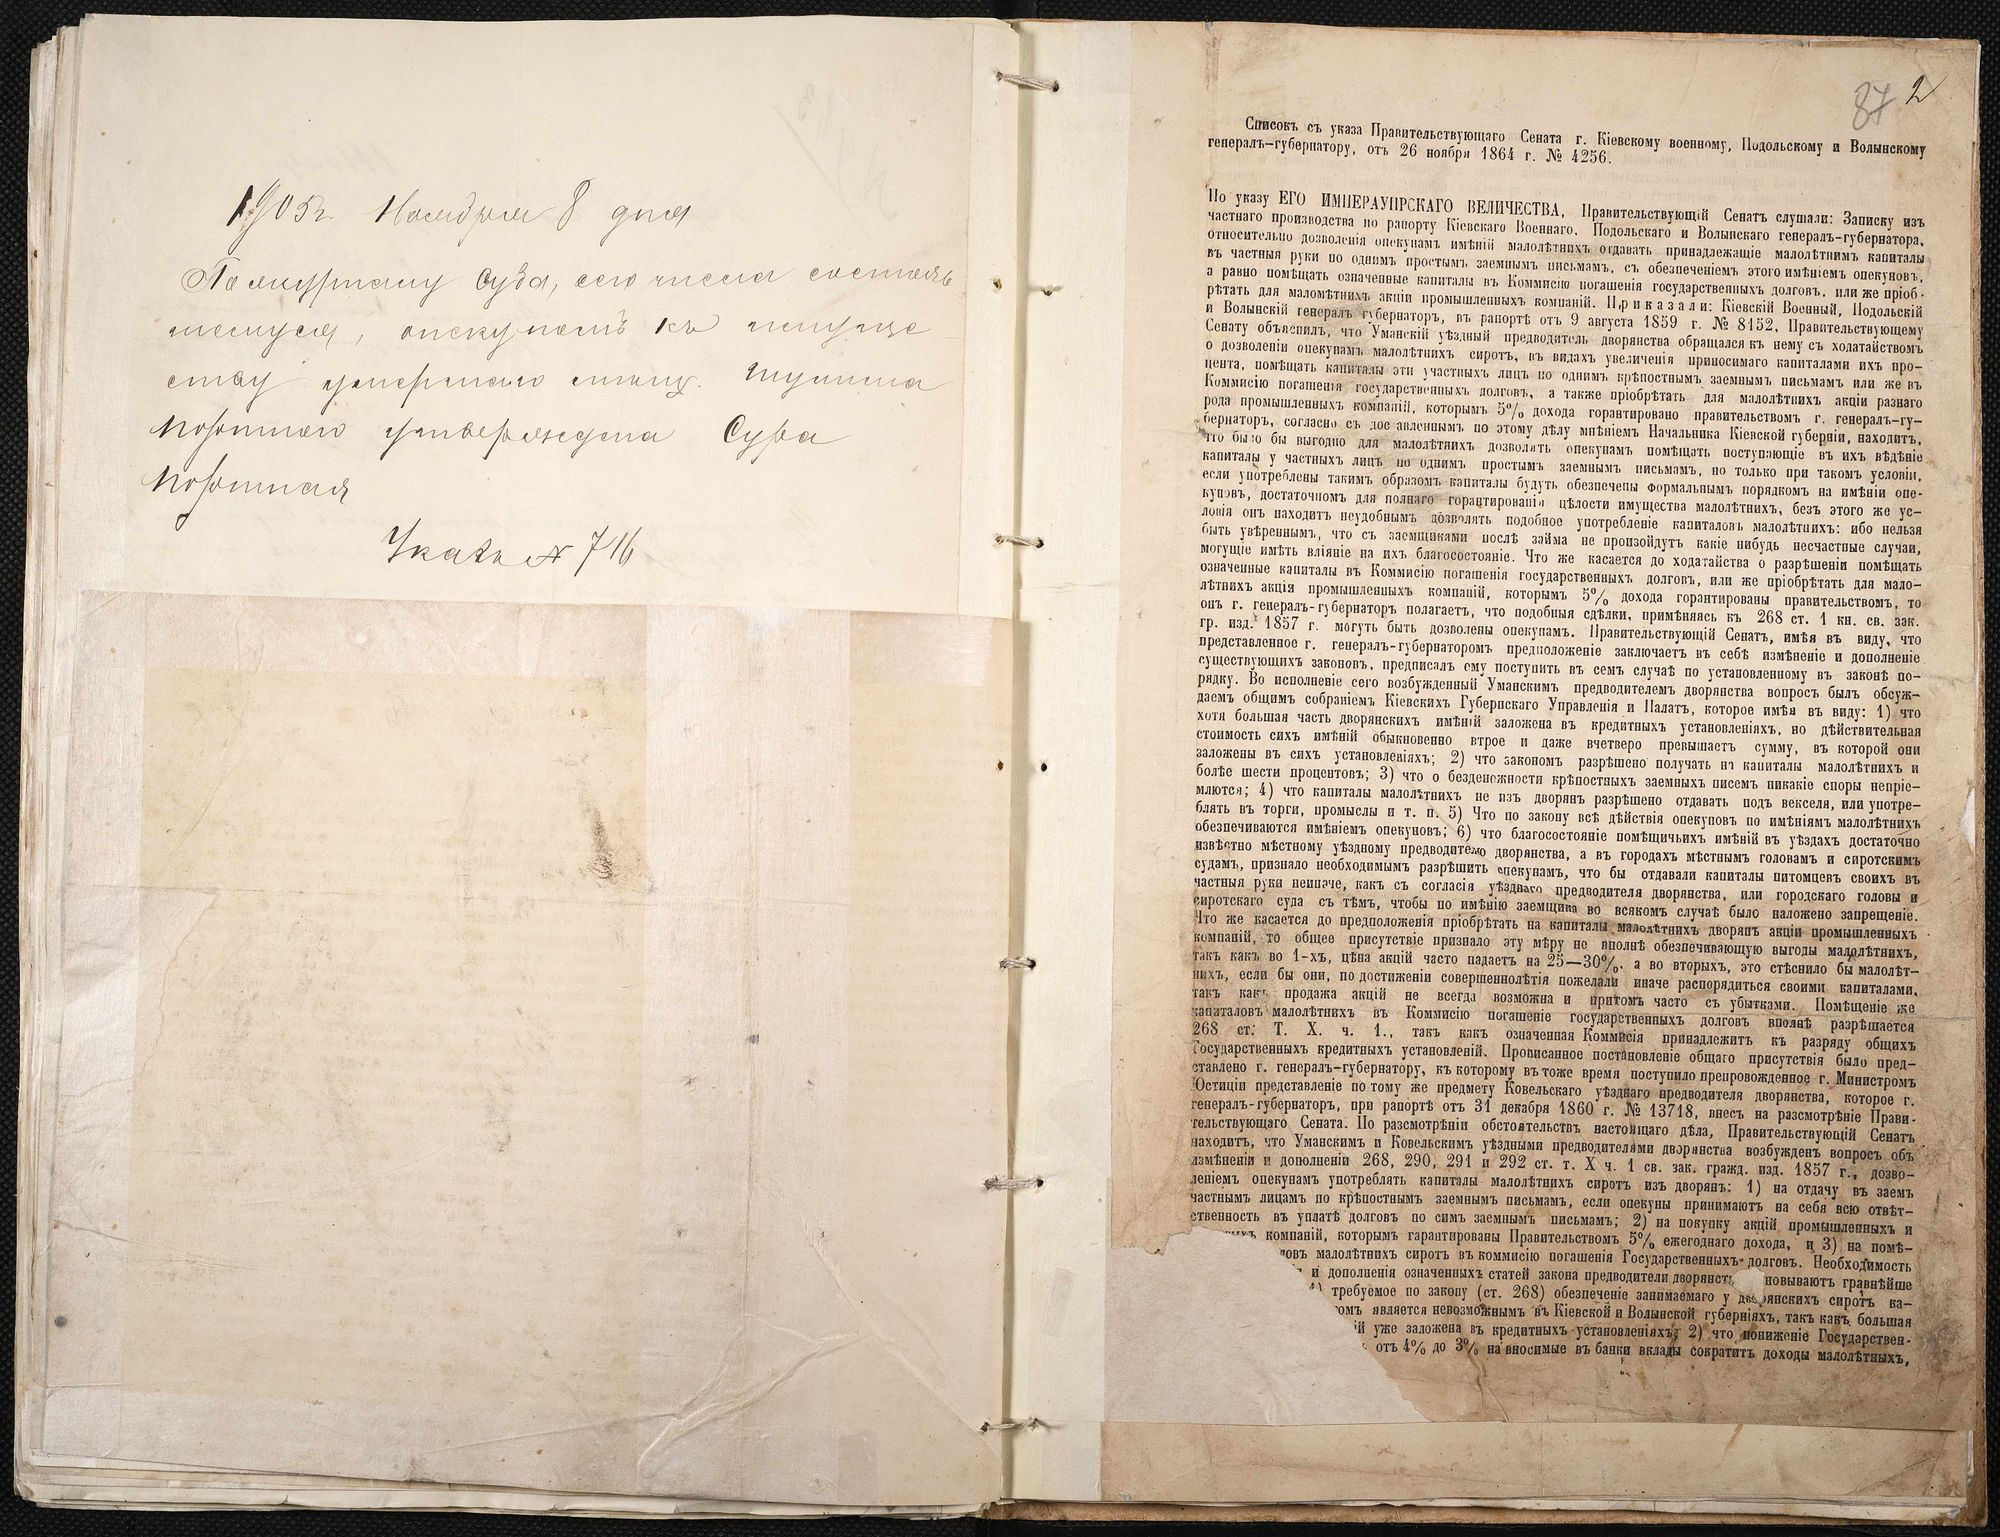 1905 г. Ноября 8 дня
По журналу Суда, сего числа состояв
шемуся, опекуном къ имуще
ству умершаго
утверждена Сура
Указъ № 716
87 2
Списокъ съ указа Правительствующаго Сената г. Кіевскому военному, Подольскому и Волынскому
генералъ-губернатору, отъ 26 ноября 1864 г. № 4256.
По указу ЕГО ИМПЕРАУИРСКАГО ВЕЛИЧЕСТВА, Правительствующій Сенатъ слушали: Записку изъ
частнаго производства по рапорту Кіевскаго Военнаго, Подольскаго и Волынскаго генералъ-губернатора,
относительно дозволенія опекунамъ имѣній малолѣтнихъ отдавать принадлежащіе малолѣтнимъ капиталы
въ частныя руки по однимъ простымъ заемнымъ письмамъ, съ обезпеченіемъ этого имѣніемъ опекуновъ,
а равно помѣщать означенные капиталы въ Коммисію погашенія государственныхъ долговъ, или же пріоб-
рѣтать для маломѣтнихъ акціи промышленныхъ компаній. Приказали: Кіевскій Военный, Подольскій
и Волынскій генералъ губернаторъ, въ рапортѣ отъ 9 августа 1859 г. № 8152, Правительствующему
Сенату объяснилъ, что Уманскій уѣздный предводитель дворянства обращался къ нему съ ходатайствомъ
о дозволеніи опекунамъ малолѣтнихъ сиротъ, въ видахъ увеличенія приносимаго капиталами ихъ про-
цента, помѣщать капиталы эти у частныхъ лицъ по однимъ крѣпостнымъ заемнымъ письмамъ или же въ
Коммисію погашенія государственныхъ долговъ, а также пріобрѣтать для малолѣтнихъ акціи разнаго
рода промышленныхъ компаній, которымъ 5% дохода горантировано правительствомъ г. генералъ-гу-
бернаторъ, согласно съ дос авленнымъ по этому дѣлу мнѣніемъ Начальника Кіевской губерніи, находитъ,
что было бы выгодно для малолѣтнихъ дозволять опекунамъ помѣщать поступающіе въ ихъ вѣдѣніе
капиталы у частныхъ лицъ по однимъ простымъ заемнымъ письмамъ, но только при такомъ условіи,
если употреблены такимъ образомъ капиталы будутъ обезпечены формальнымъ порядкомъ на имѣніи опе-
куновъ, достаточномъ для полнаго горантированія цѣлости имущества малолѣтнихъ, безъ этого же ус-
ловія онъ находитъ неудобнымъ дозволять подобное употребленіе капиталовъ малолѣтнихъ: ибо нельзя
быть увѣреннымъ, что съ заемщиками послѣ займа не произойдутъ какіе нибудь несчастные случаи,
могущіе имѣть вліяніе на ихъ благосостояніе. Что же касается до ходатайства о разрѣшеніи помѣщать
означенные капиталы въ Коммисію погашенія государственныхъ долговъ, или же пріобрѣтать для мало-
лѣтнихъ акція промышленныхъ компаній, которымъ 5% дохода горантированы правительствомъ, то
онъ г. генералъ-губернаторъ полагаетъ, что подобныя сдѣлки, примѣняясь къ 268 ст. 1 кн. св. зак.
гр. изд. 1857 г. могуть быть дозволены опекунамъ. Правительствующій Сенатъ, имѣя въ виду, что
представленное г. генералъ-губернаторомъ предположеніе заключаетъ въ себѣ измѣненіе и дополненіе
существующихъ законовъ, предписалъ ему поступить въ семъ случаѣ по установленному въ законѣ по-
рядку. Во исполненіе сего возбужденный Уманскимъ предводителемъ дворянства вопросъ былъ обсуж-
даемъ общимъ собраніемъ Кіевскихъ Губернскаго Управленія и Палатъ, которое имѣя въ виду: 1) что
хотя большая часть дворянскихъ имѣній заложена въ кредитныхъ установленіяхъ, но дѣйствительная
стоимость сихъ имѣній обыкновенно втрое и даже вчетверо превышаетъ сумму, въ которой они
заложены въ сихъ установленіяхъ; 2) что закономъ разрѣшено получать на капиталы малолѣтнихъ и
болѣе шести процентовъ; 3) что о безденожности крѣпостныхъ заемныхъ писемъ никакіе споры непріе-
млются; 4) что капиталы малолѣтнихъ не изъ дворянъ разрѣшено отдавать подъ векселя, или употре-
блять въ торги, промыслы и т. п. 5) Что по закону всѣ дѣйствія опекуновъ по имѣніямъ малолѣтнихъ
обезпечиваются имѣніемъ опекуновъ; 6) что благосостояніе помѣщичьихъ имѣній въ уѣздахъ достаточно
извѣстно мѣстному уѣздному предводителю дворянства, а въ городахъ мѣстнымъ головамъ и сиротскимъ
судамъ, признало необходимымъ разрѣшить опекунамъ, что бы отдавали капиталы питомцевъ своихъ въ
частныя руки неиначе, какъ съ согласія уѣзднаго предводителя дворянства, или городскаго головы и
сиротскаго суда съ тѣмъ, чтобы по имѣнію заемщика во всякомъ случаѣ было наложено запрещеніе.
Что же касается до предположенія пріобрѣтать на капиталы малолѣтнихъ дворянъ акціи промышленныхъ
компаній, то общее присутствіе признало эту мѣру не вполнѣ обезпечивающую выгоды малолѣтнихъ,
такъ какъ во 1-хъ, цѣна акцій часто падаетъ на 25—30%, а во вторыхъ, это стѣснило бы малолѣт-
нихъ, если бы они, по достиженіи совершеннолѣтія пожелали иначе распорядиться своими капиталами,
такъ какъ продажа акцій не всегда возможна и притомъ часто съ убытками. Помѣщеніе же
капиталовъ малолѣтнихъ въ Коммисію погашеніе государственныхъ долговъ вполнѣ разрѣшается
268 ст. Т. X. ч. 1., такъ какъ означенная Коммисія принадлежитъ къ разряду общихъ
Государственныхъ кредитныхъ установленій. Прописанное постановленіе общаго присутствія было пред-
ставлено г. генералъ-губернатору, къ которому въ тоже время поступило препровожденное г. Министромъ
Юстиціи представленіе по тому же предмету Ковельскаго уѣзднаго предводителя дворянства, которое г.
генералъ-губернаторъ, при рапортѣ отъ 31 декабря 1860 г. № 13718, внесъ на разсмотрѣніе Прави-
тельствующаго Сената. По разсмотрѣніи обстоятельствъ настоящаго дѣла, Правительствующій Сенатъ
находитъ, что Уманскимъ и Ковельскимъ уѣздными предводителями дворянства возбужденъ вопросъ объ
измѣненіи и дополненіи 268, 290, 291 и 292 ст. т. X ч. 1 св. зак. гражд. изд. 1857 г., дозво-
леніемъ опекунамъ употреблять капиталы малолѣтнихъ сиротъ изъ дворянъ: 1) на отдачу въ заемъ
частнымъ лицамъ по крѣпостнымъ заемнымъ письмамъ, если опекуны принимаютъ на себя всю отвѣт-
ственность въ уплатѣ долговъ по симъ заемнымъ письмамъ; 2) на покупку акцій промышленныхъ и
компаній, которымъ гарантированы Правительствомъ 5% ежегоднаго дохода, и 3) на помѣ-
ловъ малолѣтнихъ сиротъ въ коммисію погашенія Государственныхъ долговъ. Необходимость
и дополненія означенныхъ статей закона предводители дворянст новываютъ гравнѣйше
требуемое по закону (ст. 268) обезпеченіе занимаемаго у дворянскихъ сиротъ ка-
омъ является невозможнымъ въ Кіевской и Волынской губерніяхъ, такъ какъ большая
ій уже заложена въ кредитныхъ установленіяхъ; 2) что пониженіе Государствен-
отъ 4% до 3% на вносимые въ банки вклады сократитъ доходы малолѣтныхъ,